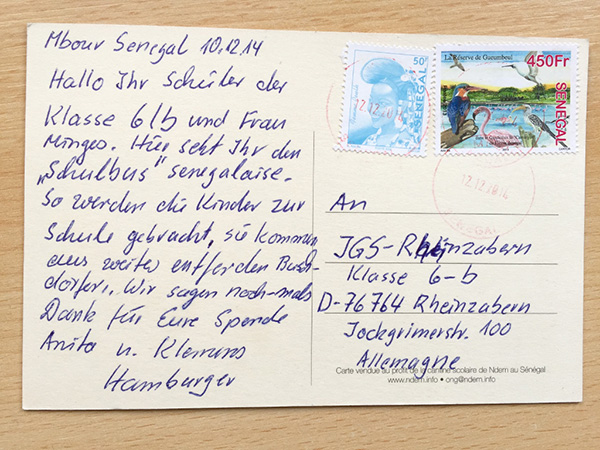 Mbour Senegal 10.12.14
Hallo Ihr Schüler der
Klasse 6/b und Frau
Minges. Hier seht Ihr den
„Schulbus" senegalaise.
So werden die Kinder zur
Schule gebracht, sie kommen
aus weiter entfernten Busch-
dörfer. Wir sagen noch-mals
Dank für Eure Spende
Anita u. Klemens
Hamburger
50F
SENEGAL
12.12.2014
La Réserve de Gueumbeul
450Fr
SENEGAL
12.12.2014
SENEGAL
An
JGS-Rheinzabern
Klasse 6-b
D-76764 Rheinzabern
Jockgrimerstr. 100
Allemagne
Carte vendue au profit de la cantine scolaire de Ndem au Sénégal
www.ndem.info • ong@ndem.info